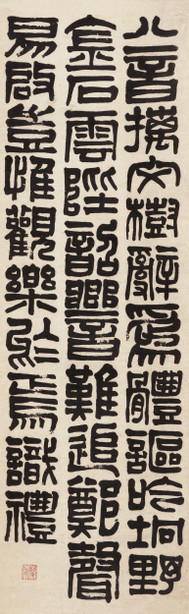 八音摛文樹辭爲體謳吟坰野
金石雲陛韶響難追鄭聲
易啟豈惟觀樂於焉識禮